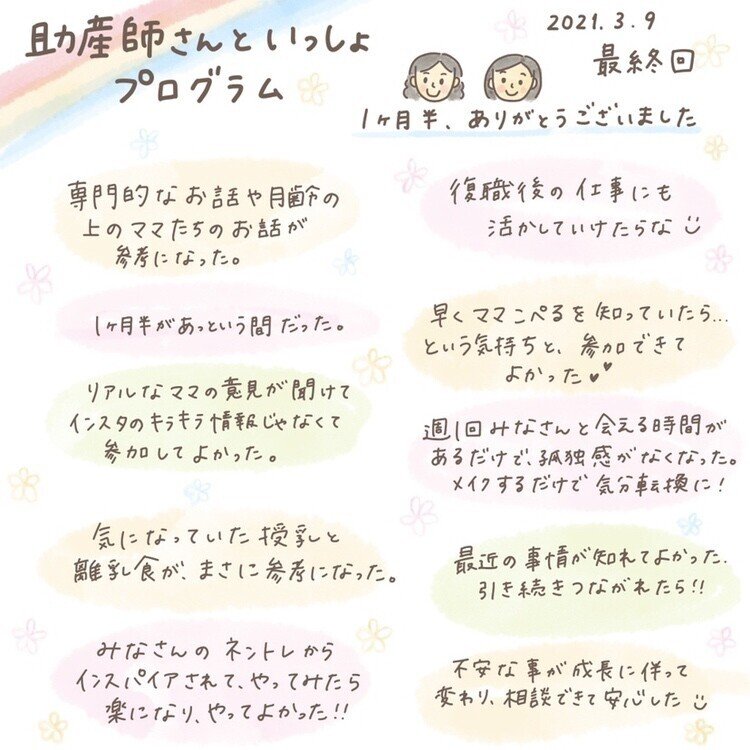 助産師さんといっしょ
プログラム
2021.3.9
最終回
1ヶ月半、ありがとうございました
専門的なお話や月齢の
上のママたちのお話が
参考になった。
1ヶ月半があっという間だった。
リアルなママの意見が聞けて
インスタのキラキラ情報じゃなくて
参加してよかった。
気になっていた授乳と
離乳食が、まさに参考になった。
みなさんのネントレから
インスパイアされて、やってみたら
楽になり、やってよかった!!
復職後の仕事にも
活かしていけたらな
早くママこぺるを知っていたら...
という気持ちと、参加できて
よかった♥♥
週1回みなさんと会える時間が
あるだけで、孤独感がなくなった。
メイクするだけで気分転換に!
最近の事情が知れてよかった.
引き続きつながれたら!!
不安な事が成長に伴って
変わり、相談できて安心した